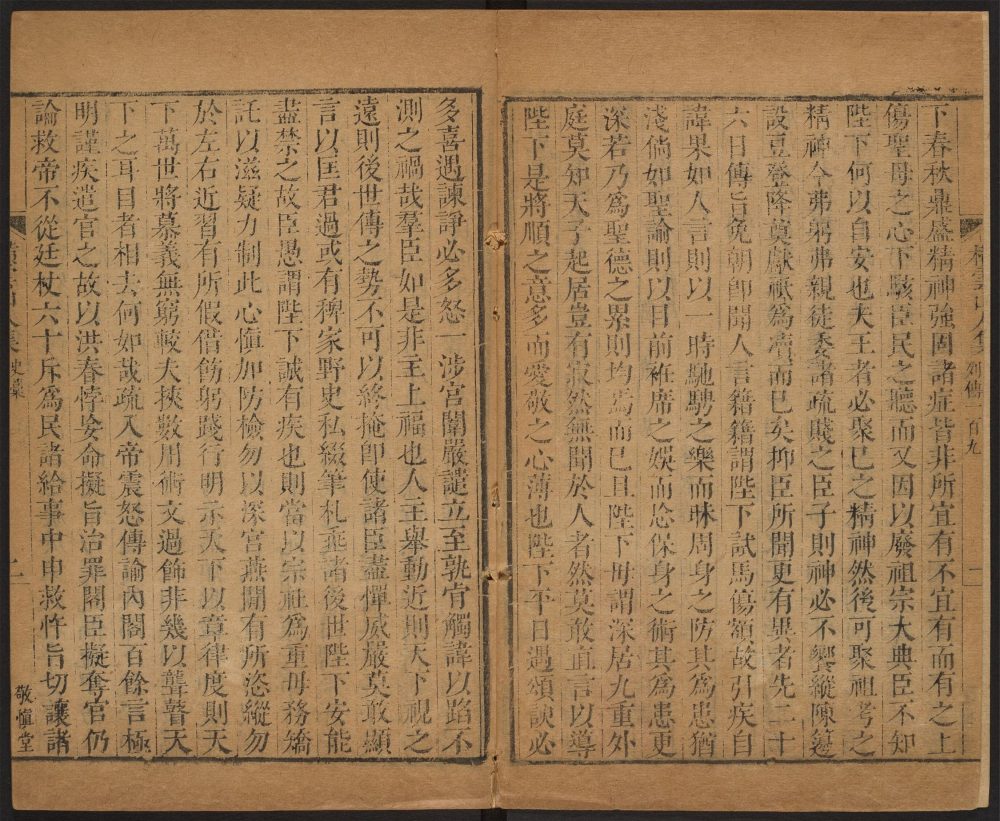 下春秋鼎盛精神強固諸症皆非所宜有不宜有而有之上
傷聖母之心下駭臣民之聽而又因以廢祖宗大典臣不知
陛下何以自安也夫王者必聚已之精神然後可聚祖考之
精神今弗躬弗親徒委諸疏賤之臣子則神必不饗縱陳籩
設豆登降奠獻祗為瀆而已矣抑臣所聞更有異者先二十
六日傳旨免朝卽聞人言籍籍謂陛下試馬傷額故引疾自
諱果如人言則以一時馳騁之樂而昧周身之防其為患猶
淺倘如聖諭則以目前袵席之娛而忘保身之術其為患更
深若乃為聖德之累則均焉而已且陛下毋謂深居九重外
庭莫知天子起居豈有寂然無聞於人者然莫敢直言以導
陛下是將順之意多而愛敬之心薄也陛下平日遇頌諛必
列傳一百九
一
多喜遇諫諍必多怒一涉宮闈嚴譴立至孰肯觸諱以蹈不
測之禍哉羣臣如是非主上福也人主舉動近則天下視之
遠則後世傳之勢不可以終掩卽使諸臣盡憚威嚴莫敢顯
言以匡君過或有稗家野史私綴筆札垂諸後世陛下安能
盡禁之故臣愚謂陛下誠有疾也則當以宗社為重毋務矯
託以滋疑力制此心愼加防檢勿以深宮燕閒有所恣縱勿
於左右近習有所假借飭躬踐行明示天下以章律度則天
下萬世將慕義無窮較夫挾數用術文過飾非幾以聾瞽天
下之耳目者相去何如哉疏入帝震怒傳諭內閣百餘言極
明謹疾遣官之故以洪春悖妄命擬旨治罪閣臣擬奪官仍
論救帝不從廷杖六十斥為民諸給事中申救忤旨切讓諸
史藁
二
敬愼堂